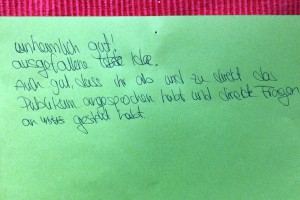 unheimlich gut!
ausgefallene Idee.
Auch gut, dass ihr ab und zu direkt das
Publikum angesprochen habt und direkte Fragen
an uns gestellt habt.